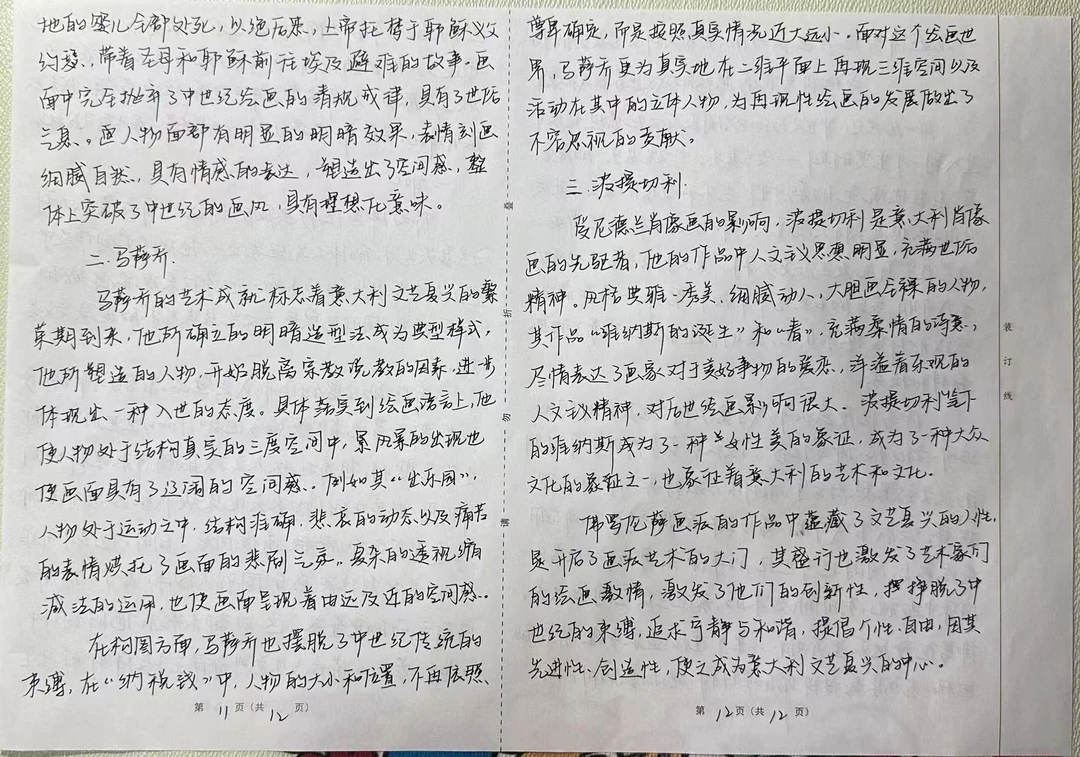 地的婴儿全部处死，以绝后患，上帝托梦于耶稣义父
约瑟，带着圣母和耶稣前往埃及避难的故事。画
面中完全抛弃了中世纪绘画的清规戒律，具有了世俗
气息。画人物面部有明显的明暗效果，表情刻画
细腻自然，具有情感的表达，塑造出了空间感，整
体上突破了中世纪的画风，具有理想化意味。
二．马萨乔．
马萨乔的艺术成就标志着意大利文艺复兴的繁
荣期到来，他所确立的明暗造型法成为典型样式，
他所塑造的人物，开始脱离宗教说教的因素，进步
体现出一种入世的态度。具体落实到绘画语言上，他
使人物处于结构真实的三度空间中，景风景的出现也
使画面具有了辽阔的空间感。例如其《出乐园》，
人物处于运动之中，结构准确，悲哀的动态以及痛苦
的表情烘托了画面的悲剧气氛。复杂的透视缩
减法的运用，也使画面呈现着由远及近的空间感。
在构图方面，马萨乔也摆脱了中世纪传统的
束缚，在《纳税钱》中，人物的大小和位置，不再依照
第11页（共12页）
尊卑确定，而是按照真实情况近大远小。面对这个绘画世
界，马萨乔更为真实地在二维平面上再现三维空间以及
活动在其中的立体人物，为再现性绘画的发展做出了
不容忽视的贡献。
三．波提切利．
受尼德兰肖像画的影响，波提切利是意大利肖像
画的先驱者，他的作品中人文主义思想明显，充满世俗
精神。风格典雅、秀美、细腻动人，大胆画全裸的人物，
其作品"维纳斯的诞生"和"春"，充满柔情的诗意，
尽情表达了画家对于美好事物的爱恋，洋溢着乐观的
人文主义精神，对后世绘画影响很大。波提切利笔下
的维纳斯成为了一种女性美的象征，成为了一种大众
文化的象征之一，也象征着意大利的艺术和文化。
佛罗伦萨画派的作品中蕴藏了文艺复兴的人性，
是开启了画派艺术的大门，其盛行也激发了艺术家们
的绘画激情，激发了他们的创新性，挣脱了中
世纪的束缚，追求宁静与和谐，提倡个性、自由，因其
先进性、创造性，使之成为意大利文艺复兴的中心。
第12页（共12页）
叠
折
勿
请
装
订
线